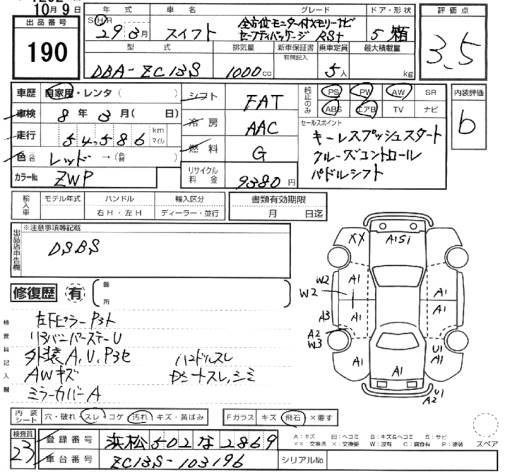 10月9日
出品番号
190
年式
グレード
ドア・形状
評価点
29.3月
スイフト
全方位モニター付メモリーナビ
セーフティパッケージ RSt
5 箱
3.5
型式
排気量
新車保証書
乗車定員
最大積載量
有無記入
DBA-ZC13S
1000cc
5人
kg
車歴 自家用・レンタ( )
シフト FAT
純正のみ
PS PW AW SR
ABS エアB TV ナビ
内装評価
b
車検 8年3月( 日)
冷房 AAC
セールスポイント
キーレスプッシュスタート
走行 54,586 km マイル
燃料 G
クルーズコントロール
色 レッド→(
パドルシフト
カラーNo ZWP
リサイクル料金 9380円
輸入車
モデル年式
ハンドル
輸入区分
右H・左H
ディーラー・並行
書類有効期限
月 日迄
出品店申告欄
※注意事項等記載
DSBS
修復歴 有
箇所
検査員記入欄
左下ピラーP3ト
リアバンパーステーU
外装A,U,P3セ
AWキズ
ミラーカバーA
ハンドルスレ
XX A1Si
W2 A1 A1
W2
A3 A1 A1
A2
W3
A1 A1 U1
A1
A1
U1
A2
内装シート
穴・破れ・スレ・コゲ・汚れ・キズ・黄ばみ
Fガラス キズ・飛石・×要す
検査員
23
登録番号 浜松502な2869
車台番号 ZC13S-103196
シリアルNo
A:キズ U:凹ヘコミ B:キズ&ヘコミ S:サビ
XX:交換済 X:要交換 W:波 C:腐食 P:塗装
スペア